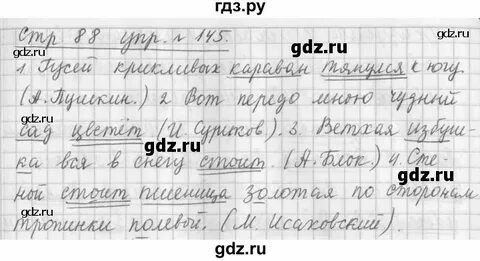 гдз.ру
Стр 88 упр. № 145.
gdz.ru gdz.ru
1. Гусей крикливых караван тянулся к югу
(А. Пушкин.) 2 Вот передо мною чудный
gdz.ru gdz.ru
сад цветёт (И. Суриков). 3. Ветхая избуш-
ка вся в снегу стоит. (А. Блок.) 4. Сте-
gdz.ru gdz.ru
ной стоит пшеница золотая по сторонам
тропинки полевой. (М. Исаковский).
gdz.ru gdz.ru
gdz.ru